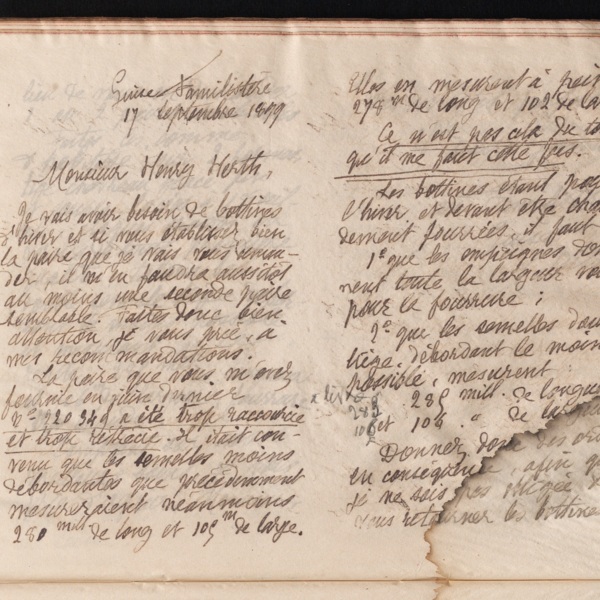 Guise Familistère
17 Septembre 1889
Monsieur Henry Herth,
Je vais avoir besoin de bottines
d'hiver et si vous établissez bien
la paire que je vais vous deman-
der, il m'en faudra aussitôt
au moins une seconde paire
semblable. Faites donc bien
attention, je vous prie, à
mes recommandations.
La paire que vous m'avez
fournie en juin dernier
N° 220 348 a été trop raccourcie
et trop rétrécie. Il était con-
venu que les semelles moins
débordantes que précédemment
mesureraient néanmoins
280 mill de long et 105 m de large.
Elles en mesurent à peine
278 m de long et 102 de la
Ce n'est pas cela du to
qu'il me faut cette fois.
Les bottines étant pour
l'hiver et devant être chau
dement fourrées, il faut
1° que les empeignes don
nent toute la largeur vou
pour la fourrure ;
2° que les semelles dou
liège, débordant le moins
possible, mesurent
285 mill. de longue
et 105 " de
Donnez donc des ord
en conséquence, afin qu
je ne sois pas obligée d
vous retourner les bottines